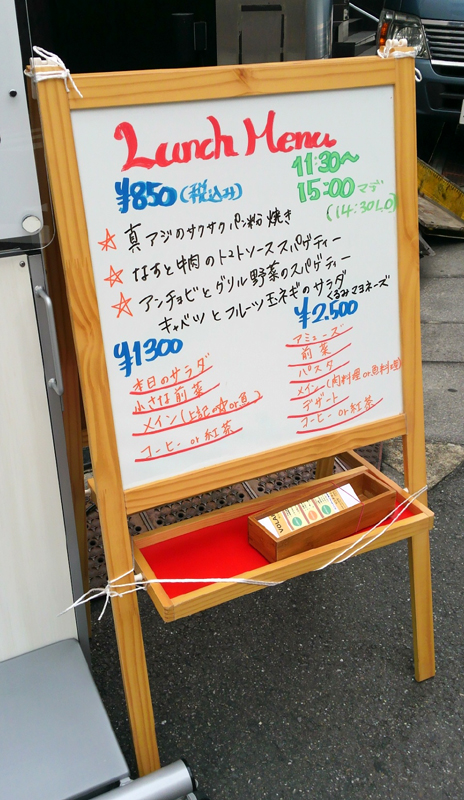 Lunch Menu
¥850(税込み)
11:30〜
15:00マデ
(14:30L.O)
☆ 真アジのサクサクパン粉焼き
☆ なすと牛肉のトマトソーススパゲティー
☆ アンチョビとグリル野菜のスパゲティー
キャベツとフルーツ玉ネギのサラダ
くるみマヨネーズ
¥1300
本日のサラダ
小さな前菜
メイン(上記の中or魚)
コーヒー or 紅茶
¥2.500
アミューズ
前菜
パスタ
メイン(肉料理or魚料理)
デザート
コーヒー or 紅茶